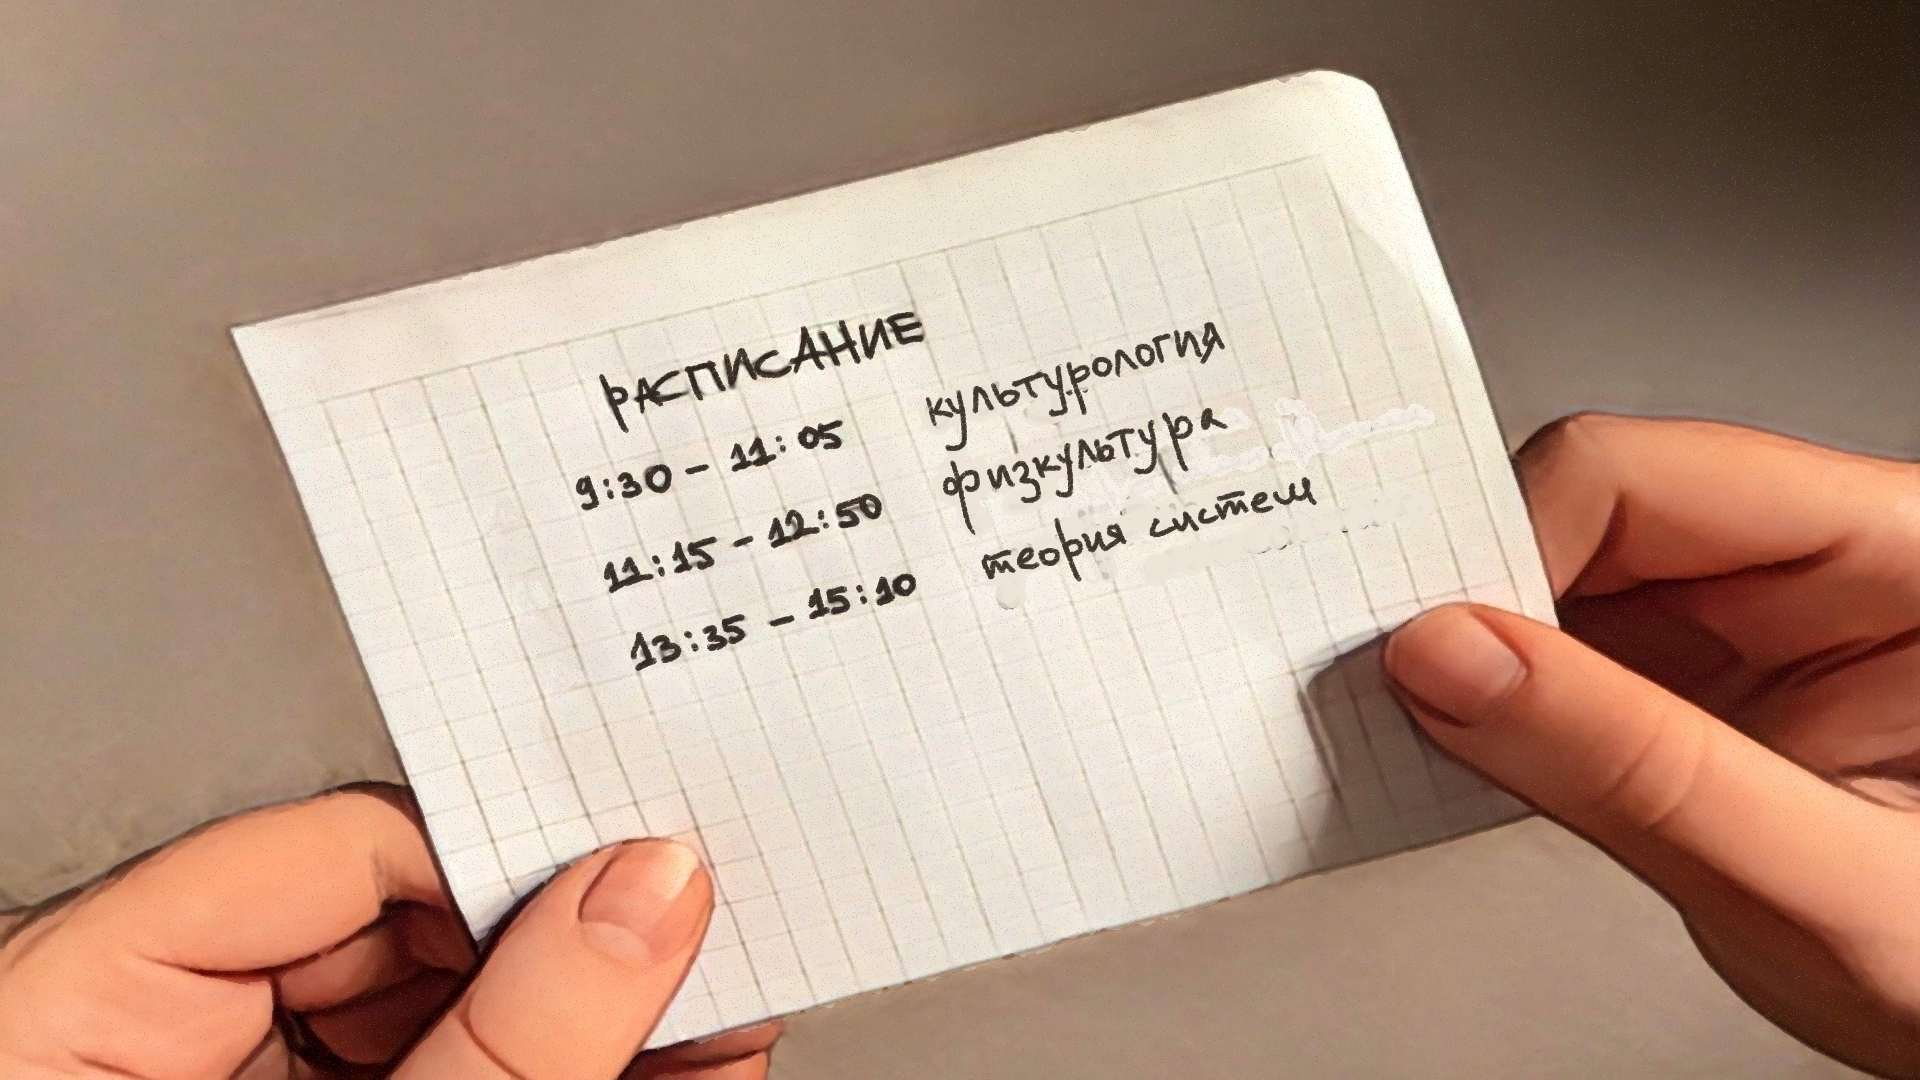 РАСПИСАНИЕ
9:30 - 11:05 культурология
11:15 - 12:50 физкультура
13:35 - 15:10 теория систем